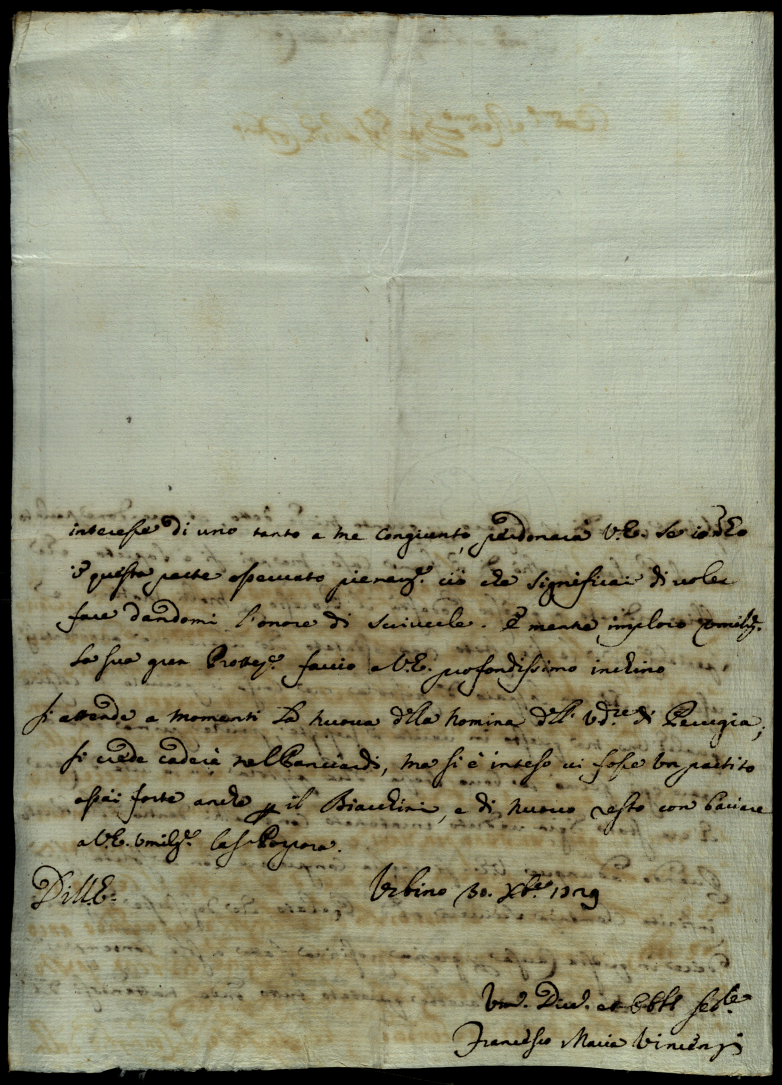 interesse di uno tanto a me congiunto, perdonerà V.E. se io
questa parte pienam.e ciò che significai di voler
fare dandomi l'onore di scriverle. E mentre imploro umilm.
la sua gran Protez.e faccio a V.E. profondissimo inchino
Si attende a momenti la nuova della nomina dell' Ud.re di Perugia,
si crede caderà nel Panciardi, ma si è inteso vi fosse un partito
assai forte anche p il Biacchini, e di nuovo resto con baciare
a V.E. umilm.e la S. Porpora.
Di V.E.
Urbino 30. Xbre 1729
Um. Dev. et Obbl. Se.re
Francesco Maria Vincenzi